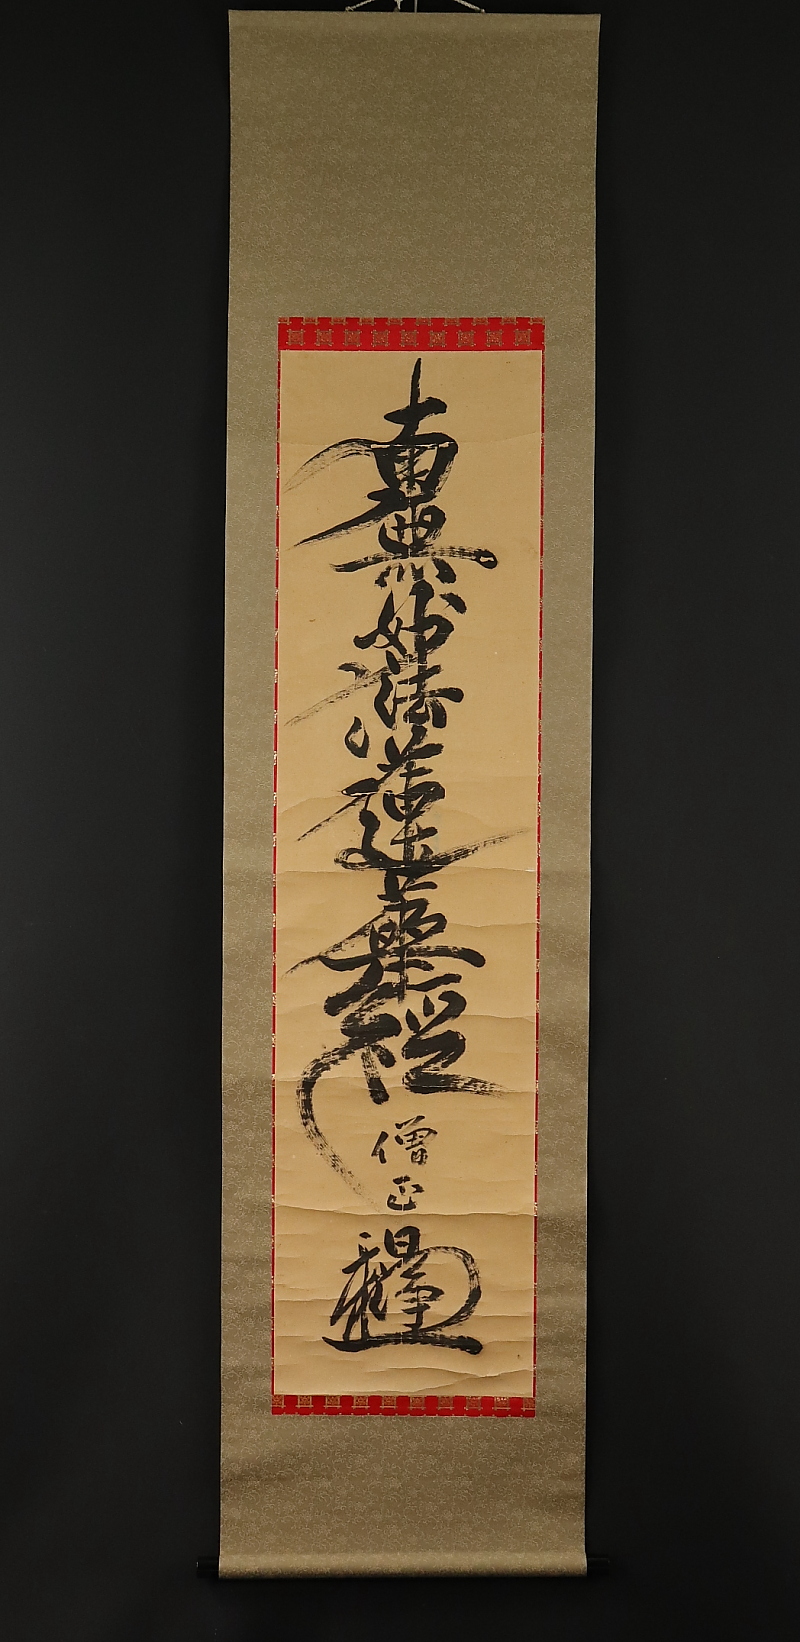 南無妙法蓮華經
僧正